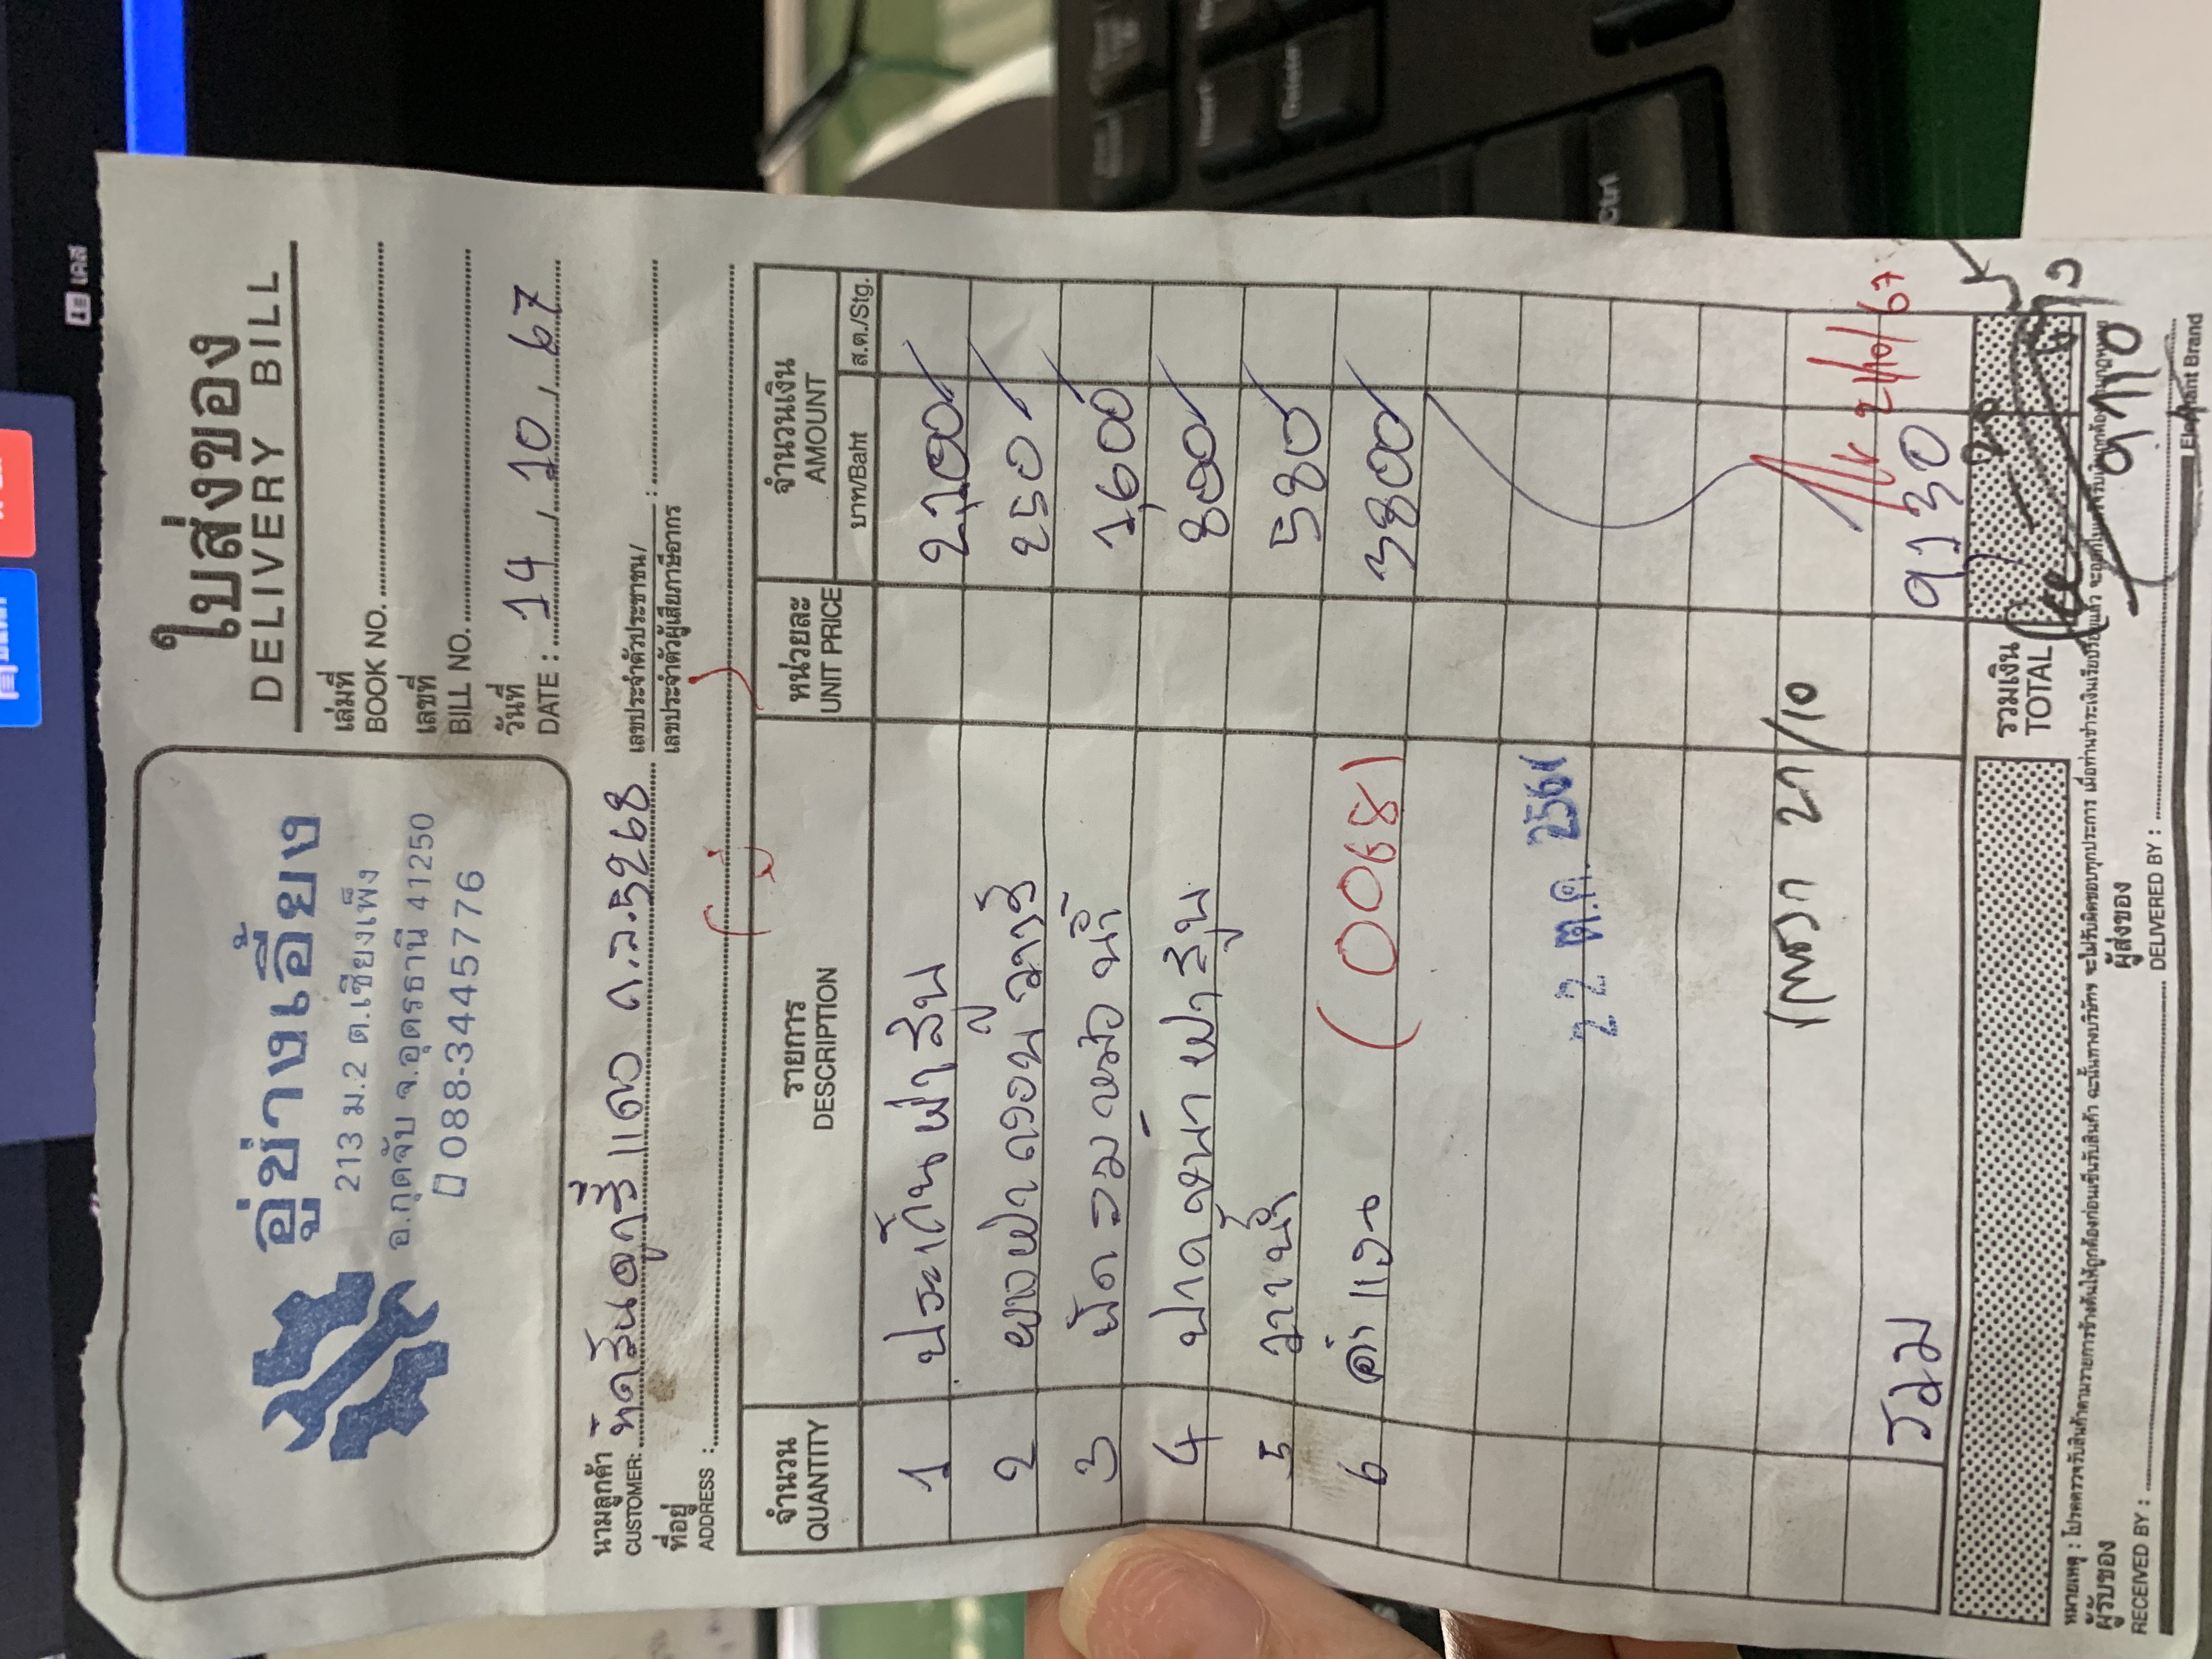 อู่ช่างเอี้ยง
213 ม.2 ต.เชียงเพ็ง
อ.กุดจับ จ.อุดรธานี 41250
088-3445776
ใบส่งของ
DELIVERY BILL
เล่มที่
BOOK NO.
เลขที่
BILL NO.
วันที่
DATE : 14 , 10 , 67
นามลูกค้า
CUSTOMER:
5268
เลขประจำตัวประชาชน/
เลขประจำตัวผู้เสียภาษีอากร :
ที่อยู่
ADDRESS :
จำนวน รายการ หน่วยละ จำนวนเงิน
QUANTITY DESCRIPTION UNIT PRICE AMOUNT
บาท/Baht ส.ต./Stg.
1 ประเก็นฝาสูบ 2,100
2 250
3 1,600
4 ปาดหน้าฝาสูบ 800
5 580
6 ค่าแรง 3800
(0068)
22 ต.ค. 2567
21/10
21/10/67
รวม 9130
รวมเงิน
TOTAL
9110
หมายเหตุ : โปรดตรวจรับสินค้าตามรายการข้างต้นให้ถูกต้องก่อนเซ็นรับสินค้า ฉะนั้นทางบริษัทฯ จะไม่รับผิดชอบทุกประการ เมื่อท่านชำระเงินเรียบร้อยแล้ว
ผู้รับของ
RECEIVED BY :
ผู้ส่งของ
DELIVERED BY :
Elephant Brand
Insert
Delete
Ctrl